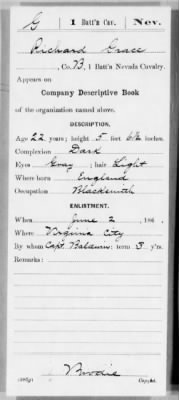 G | 1 Batt'n Cav. | Nev.
Richard Grace
, Co. B, 1 Batt'n Nevada Cavalry.
Appears on
Company Descriptive Book
of the organization named above.
DESCRIPTION.
Age 22 years; height 5 feet 6½ inches.
Complexion Dark
Eyes Gray; hair Light
Where born England
Occupation Blacksmith
ENLISTMENT.
When June 2, 186 .
Where Virginia City
By whom Capt. Baldwin; term 3 y'rs.
Remarks:
Brodie
Copyist.